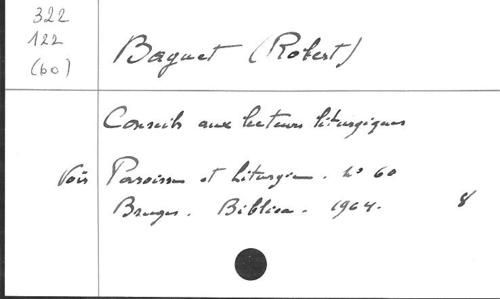 322
122
(60)
Baguet (Robert)
Conseils aux lecteurs liturgiques
Voir Paroisse et Liturgie. N° 60
Bruges. Biblica. 1964. 8